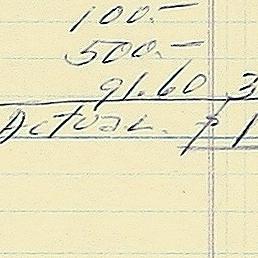 100.—
500.—
91.60 3
Actual. 1